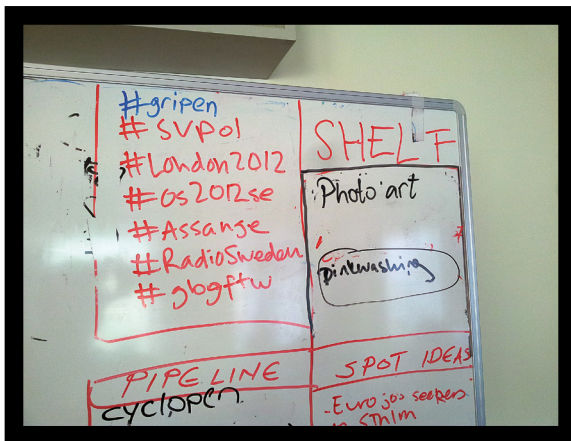 #gripen
#SVPol
#London2012
#OS2012se
#Assange
#RadioSweden
#gbgftw
SHELF
Photo art
pinkwashing
PIPELINE
cyclopen
SPOT IDEAS
- Euro job seekers
in Sthlm